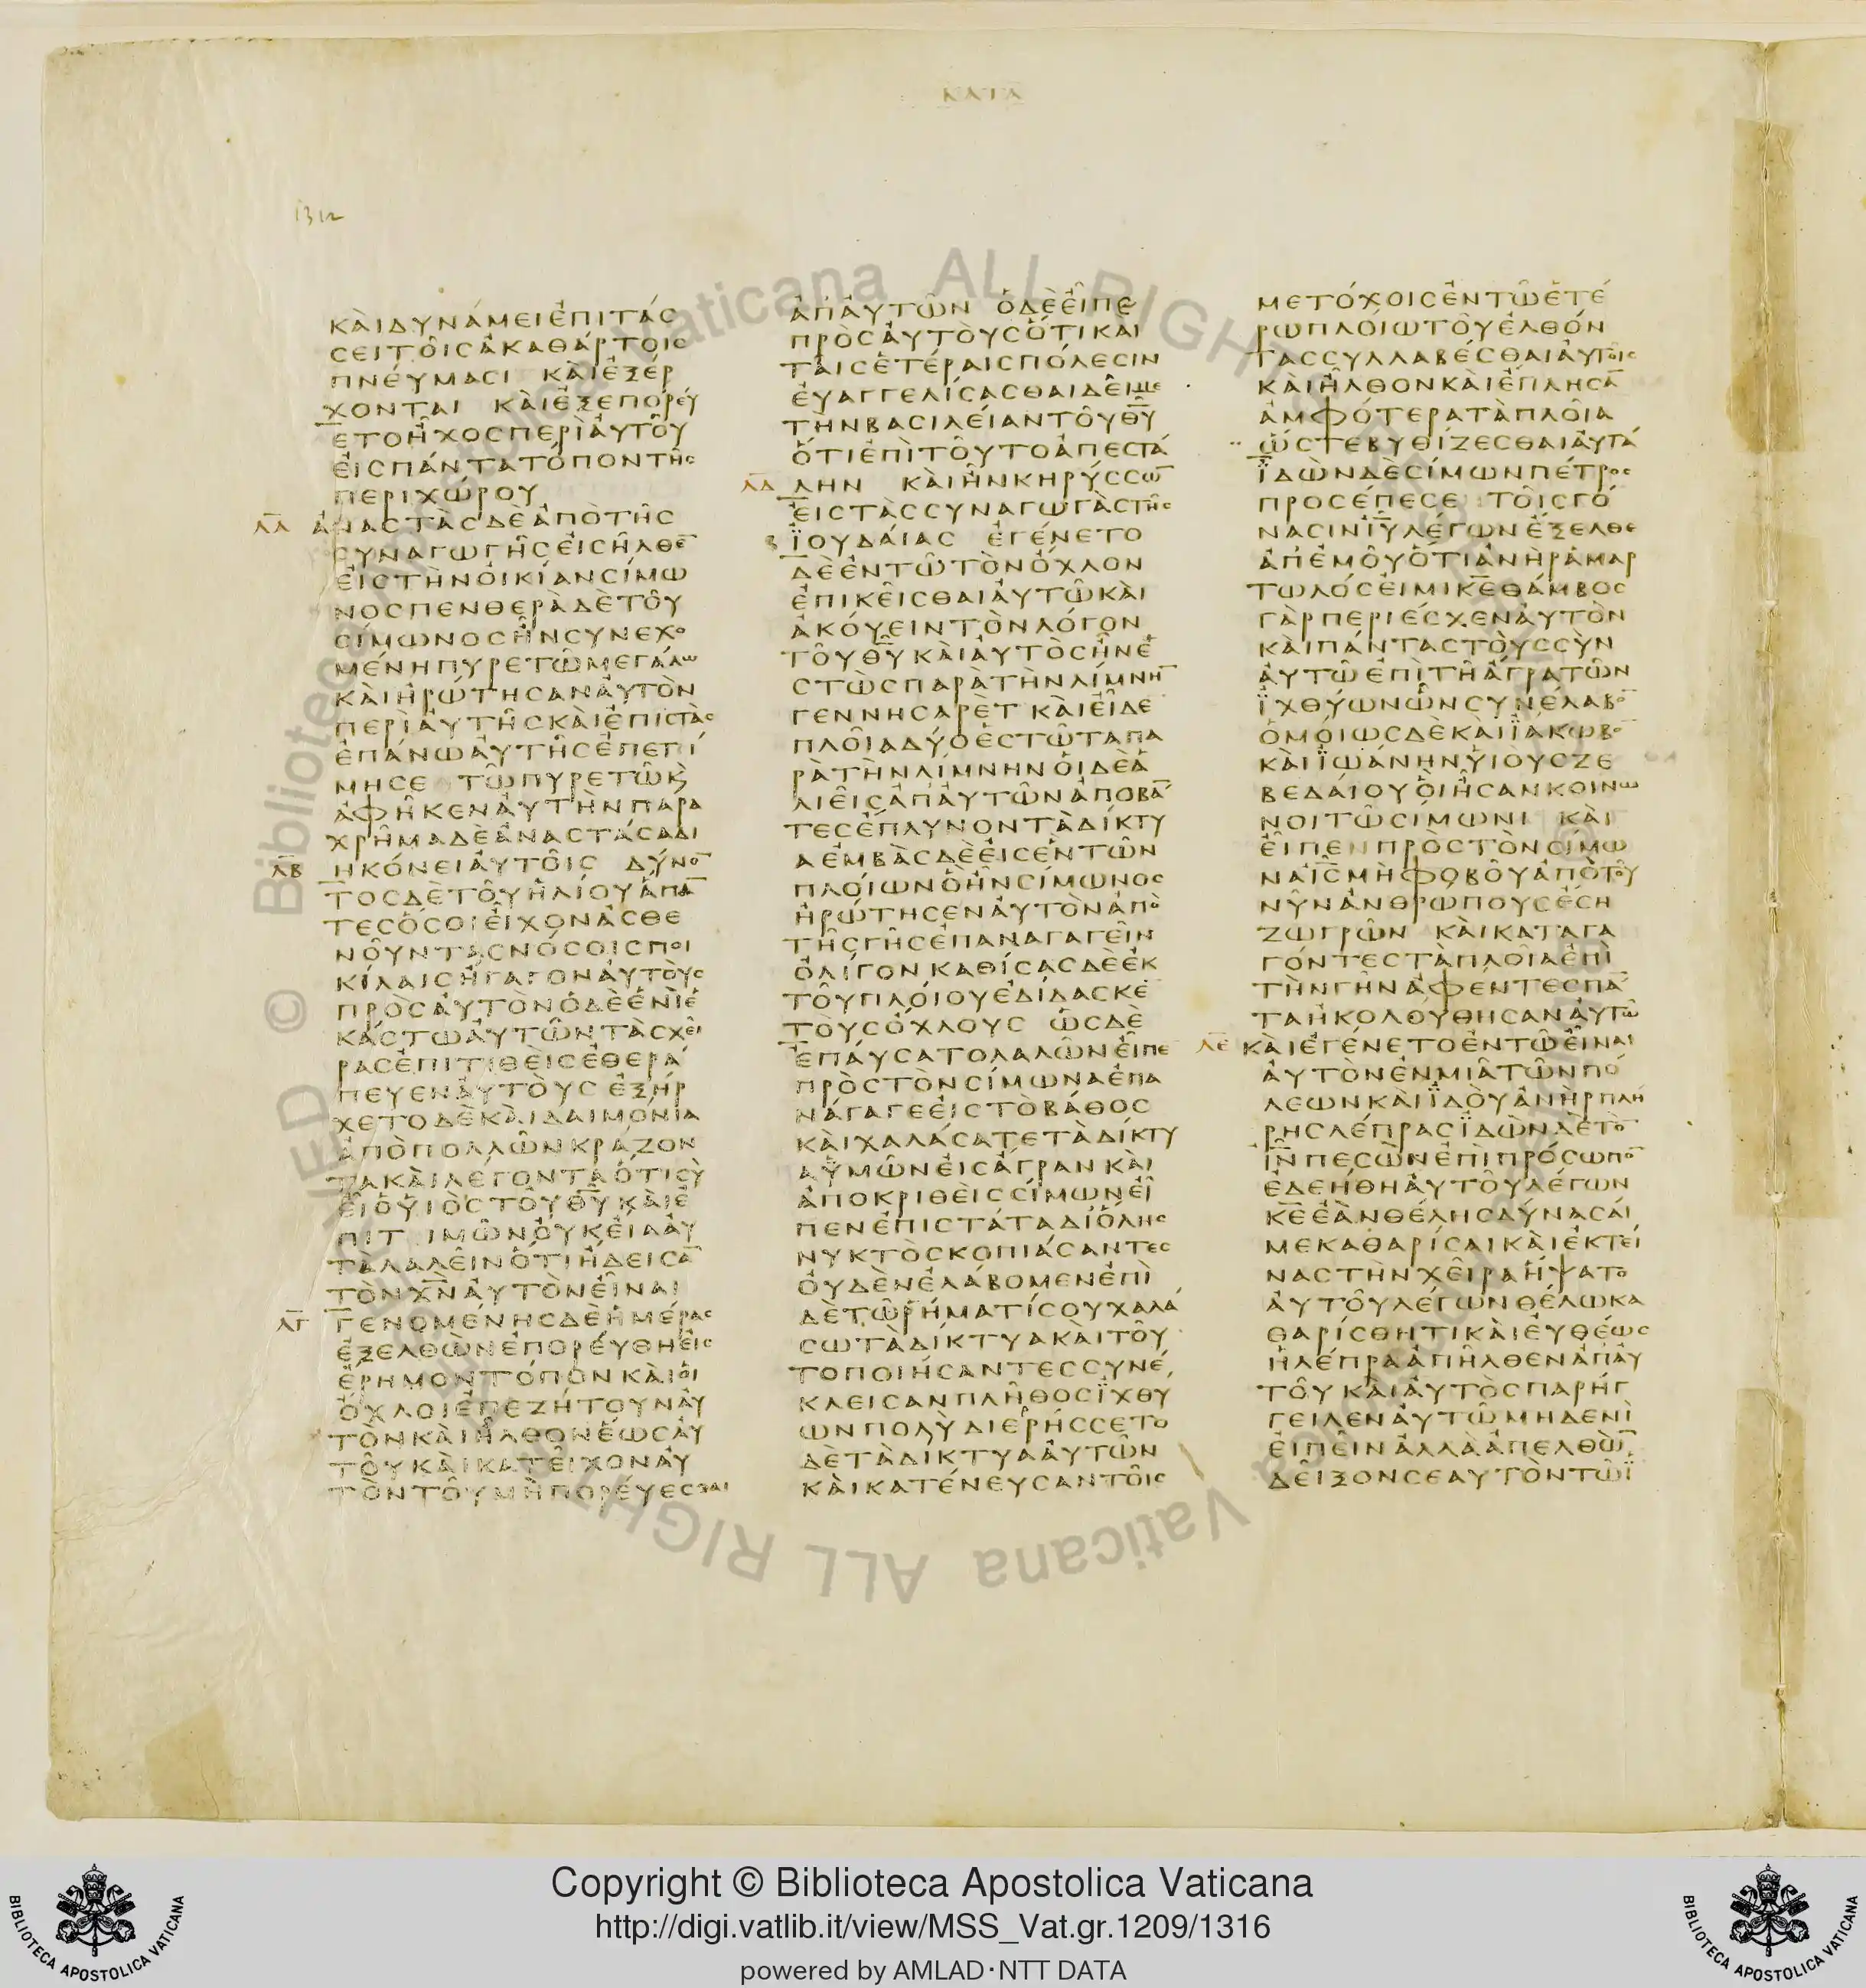 ΚΑΤΑ
1312
ΚΑΙΔΥΝΑΜΕΙΕΠΙΤΑϹ
ϹΕΙΤΟΙϹΑΚΑΘΑΡΤΟΙϹ
ΠΝΕΥΜΑϹΙ ΚΑΙΕΞΕΡ
ΧΟΝΤΑΙ ΚΑΙΕΞΕΠΟΡΕΥ
ΕΤΟΗΧΟϹΠΕΡΙΑΥΤΟΥ
ΕΙϹΠΑΝΤΑΤΟΠΟΝΤΗϹ
ΠΕΡΙΧΩΡΟΥ
ΛΑ ΑΝΑϹΤΑϹΔΕΑΠΟΤΗϹ
ϹΥΝΑΓΩΓΗϹΕΙϹΗΛΘΕ̅
ΕΙϹΤΗΝΟΙΚΙΑΝϹΙΜΩ
ΝΟϹΠΕΝΘΕΡΑΔΕΤΟΥ
ϹΙΜΩΝΟϹΗΝϹΥΝΕΧΟ
ΜΕΝΗΠΥΡΕΤΩΜΕΓΑΛΩ
ΚΑΙΗΡΩΤΗϹΑΝΑΥΤΟΝ
ΠΕΡΙΑΥΤΗϹΚΑΙΕΠΙϹΤΑϹ
ΕΠΑΝΩΑΥΤΗϹΕΠΕΤΙ
ΜΗϹΕ ΤΩΠΥΡΕΤΩΚ
ΑΦΗΚΕΝΑΥΤΗΝΠΑΡΑ
ΧΡΗΜΑΔΕΑΝΑϹΤΑϹΑΔΙ
ΛΒ ΗΚΟΝΕΙΑΥΤΟΙϹ ΔΥΝΟ̅
ΤΟϹΔΕΤΟΥΗΛΙΟΥΑΠΑ̅
ΤΕϹΟϹΟΙΕΙΧΟΝΑϹΘΕ
ΝΟΥΝΤΑϹΝΟϹΟΙϹΠΟΙ
ΚΙΛΑΙϹΗΓΑΓΟΝΑΥΤΟΥϹ
ΠΡΟϹΑΥΤΟΝΟΔΕΕΝΙΕ
ΚΑϹΤΩΑΥΤΩΝΤΑϹΧΕΙ
ΡΑϹΕΠΙΤΙΘΕΙϹΕΘΕΡΑ
ΠΕΥΕΝΑΥΤΟΥϹ ΕΞΗΡ
ΧΕΤΟΔΕΚΑΙΔΑΙΜΟΝΙΑ
ΑΠΟΠΟΛΛΩΝΚΡΑΖΟΝ
ΤΑΚΑΙΛΕΓΟΝΤΑΟΤΙϹΥ
ΕΙΟΥΙΟϹΤΟΥΘ̅Υ̅ΚΑΙΕ
ΠΙΤΙΜΩΝΟΥΚΕΙΑΑΥ
ΤΑΛΑΛΕΙΝΟΤΙΗΔΕΙϹΑ̅
ΤΟΝΧ̅Ν̅ΑΥΤΟΝΕΙΝΑΙ
ΛΓ ΓΕΝΟΜΕΝΗϹΔΕΗΜΕΡΑϹ
ΕΞΕΛΘΩΝΕΠΟΡΕΥΘΗΕΙϹ
ΕΡΗΜΟΝΤΟΠΟΝΚΑΙΟΙ
ΟΧΛΟΙΕΠΕΖΗΤΟΥΝΑΥ
ΤΟΝΚΑΙΗΛΘΟΝΕΩϹΑΥ
ΤΟΥΚΑΙΚΑΤΕΙΧΟΝΑΥ
ΤΟΝΤΟΥΜΗΠΟΡΕΥΕϹΘΑΙ
ΑΠΑΥΤΩΝ ΟΔΕΕΙΠΕ
ΠΡΟϹΑΥΤΟΥϹΟΤΙΚΑΙ
ΤΑΙϹΕΤΕΡΑΙϹΠΟΛΕϹΙΝ
ΕΥΑΓΓΕΛΙϹΑϹΘΑΙΔΕΙΜΕ
ΤΗΝΒΑϹΙΛΕΙΑΝΤΟΥΘ̅Υ̅
ΟΤΙΕΠΙΤΟΥΤΟΑΠΕϹΤΑ
ΛΔ ΛΗΝ ΚΑΙΗΝΚΗΡΥϹϹΩ̅
ΕΙϹΤΑϹϹΥΝΑΓΩΓΑϹΤΗϹ
Β ΪΟΥΔΑΙΑϹ ΕΓΕΝΕΤΟ
ΔΕΕΝΤΩΤΟΝΟΧΛΟΝ
ΕΠΙΚΕΙϹΘΑΙΑΥΤΩΚΑΙ
ΑΚΟΥΕΙΝΤΟΝΛΟΓΟΝ
ΤΟΥΘ̅Υ̅ΚΑΙΑΥΤΟϹΗΝΕ
ϹΤΩϹΠΑΡΑΤΗΝΛΙΜΝΗ̅
ΓΕΝΝΗϹΑΡΕΤ ΚΑΙΕΙΔΕ
ΠΛΟΙΑΔΥΟΕϹΤΩΤΑΠΑ
ΡΑΤΗΝΛΙΜΝΗΝΟΙΔΕΑ
ΛΙΕΙϹΑΠΑΥΤΩΝΑΠΟΒΑ̅
ΤΕϹΕΠΛΥΝΟΝΤΑΔΙΚΤΥ
ΑΕΜΒΑϹΔΕΕΙϹΕΝΤΩΝ
ΠΛΟΙΩΝΟΗΝϹΙΜΩΝΟϹ
ΗΡΩΤΗϹΕΝΑΥΤΟΝΑΠΟ
ΤΗϹΓΗϹΕΠΑΝΑΓΑΓΕΙΝ
ΟΛΙΓΟΝΚΑΘΙϹΑϹΔΕΕΚ
ΤΟΥΠΛΟΙΟΥΕΔΙΔΑϹΚΕ
ΤΟΥϹΟΧΛΟΥϹ ΩϹΔΕ
ΕΠΑΥϹΑΤΟΛΑΛΩΝΕΙΠΕ
ΠΡΟϹΤΟΝϹΙΜΩΝΑΕΠΑ
ΝΑΓΑΓΕΕΙϹΤΟΒΑΘΟϹ
ΚΑΙΧΑΛΑϹΑΤΕΤΑΔΙΚΤΥ
ΑΥΜΩΝΕΙϹΑΓΡΑΝΚΑΙ
ΑΠΟΚΡΙΘΕΙϹϹΙΜΩΝΕΙ
ΠΕΝΕΠΙϹΤΑΤΑΔΙΟΛΗϹ
ΝΥΚΤΟϹΚΟΠΙΑϹΑΝΤΕϹ
ΟΥΔΕΝΕΛΑΒΟΜΕΝΕΠΙ
ΔΕΤΩΡΗΜΑΤΙϹΟΥΧΑΛΑ
ϹΩΤΑΔΙΚΤΥΑΚΑΙΤΟΥ
ΤΟΠΟΙΗϹΑΝΤΕϹϹΥΝΕ
ΚΛΕΙϹΑΝΠΛΗΘΟϹΪΧΘΥ
ΩΝΠΟΛΥΔΙΕΡΗϹϹΕΤΟ
ΔΕΤΑΔΙΚΤΥΑΑΥΤΩΝ
ΚΑΙΚΑΤΕΝΕΥϹΑΝΤΟΙϹ
ΜΕΤΟΧΟΙϹΕΝΤΩΕΤΕ
ΡΩΠΛΟΙΩΤΟΥΕΛΘΟΝ
ΤΑϹϹΥΛΛΑΒΕϹΘΑΙΑΥΤΟΙϹ
ΚΑΙΗΛΘΟΝΚΑΙΕΠΛΗϹΑ̅
ΑΜΦΟΤΕΡΑΤΑΠΛΟΙΑ
ΩϹΤΕΒΥΘΙΖΕϹΘΑΙΑΥΤΑ
ΪΔΩΝΔΕϹΙΜΩΝΠΕΤΡΟϹ
ΠΡΟϹΕΠΕϹΕ ΤΟΙϹΓΟ
ΝΑϹΙΝΙ̅Υ̅ΛΕΓΩΝΕΞΕΛΘΕ
ΑΠΕΜΟΥΟΤΙΑΝΗΡΑΜΑΡ
ΤΩΛΟϹΕΙΜΙΚ̅Ε̅ΘΑΜΒΟϹ
ΓΑΡΠΕΡΙΕϹΧΕΝΑΥΤΟΝ
ΚΑΙΠΑΝΤΑϹΤΟΥϹϹΥΝ
ΑΥΤΩΕΠΙΤΗΑΓΡΑΤΩΝ
ΪΧΘΥΩΝΩΝϹΥΝΕΛΑΒΟ̅
ΟΜΟΙΩϹΔΕΚΑΙΪΑΚΩΒΟ̅
ΚΑΙΪΩΑΝΗΝΥΙΟΥϹΖΕ
ΒΕΔΑΙΟΥΟΙΗϹΑΝΚΟΙΝΩ
ΝΟΙΤΩϹΙΜΩΝΙ ΚΑΙ
ΕΙΠΕΝΠΡΟϹΤΟΝϹΙΜΩ
ΝΑΙ̅Ϲ̅ΜΗΦΟΒΟΥΑΠΟΤΟΥ
ΝΥΝΑΝΘΡΩΠΟΥϹΕϹΗ
ΖΩΓΡΩΝ ΚΑΙΚΑΤΑΓΑ
ΓΟΝΤΕϹΤΑΠΛΟΙΑΕΠΙ
ΤΗΝΓΗΝΑΦΕΝΤΕϹΠΑ̅
ΤΑΗΚΟΛΟΥΘΗϹΑΝΑΥΤΩ
ΛΕ ΚΑΙΕΓΕΝΕΤΟΕΝΤΩΕΙΝΑΙ
ΑΥΤΟΝΕΝΜΙΑΤΩΝΠΟ
ΛΕΩΝΚΑΙΪΔΟΥΑΝΗΡΠΛΗ
ΡΗϹΛΕΠΡΑϹΪΔΩΝΔΕΤΟ̅
Ι̅Ν̅ΠΕϹΩΝΕΠΙΠΡΟϹΩΠΟ̅
ΕΔΕΗΘΗΑΥΤΟΥΛΕΓΩΝ
Κ̅Ε̅ΕΑΝΘΕΛΗϹΔΥΝΑϹΑΙ
ΜΕΚΑΘΑΡΙϹΑΙΚΑΙΕΚΤΕΙ
ΝΑϹΤΗΝΧΕΙΡΑΗΨΑΤΟ
ΑΥΤΟΥΛΕΓΩΝΘΕΛΩΚΑ
ΘΑΡΙϹΘΗΤΙΚΑΙΕΥΘΕΩϹ
ΗΛΕΠΡΑΑΠΗΛΘΕΝΑΠΑΥ
ΤΟΥΚΑΙΑΥΤΟϹΠΑΡΗΓ
ΓΕΙΛΕΝΑΥΤΩΜΗΔΕΝΙ
ΕΙΠΕΙΝΑΛΛΑΑΠΕΛΘΩ̅
ΔΕΙΞΟΝϹΕΑΥΤΟΝΤΩΪ
Copyright © Biblioteca Apostolica Vaticana
http://digi.vatlib.it/view/MSS_Vat.gr.1209/1316
powered by AMLAD·NTT DATA
BIBLIOTECA APOSTOLICA VATICANA
BIBLIOTECA APOSTOLICA VATICANA